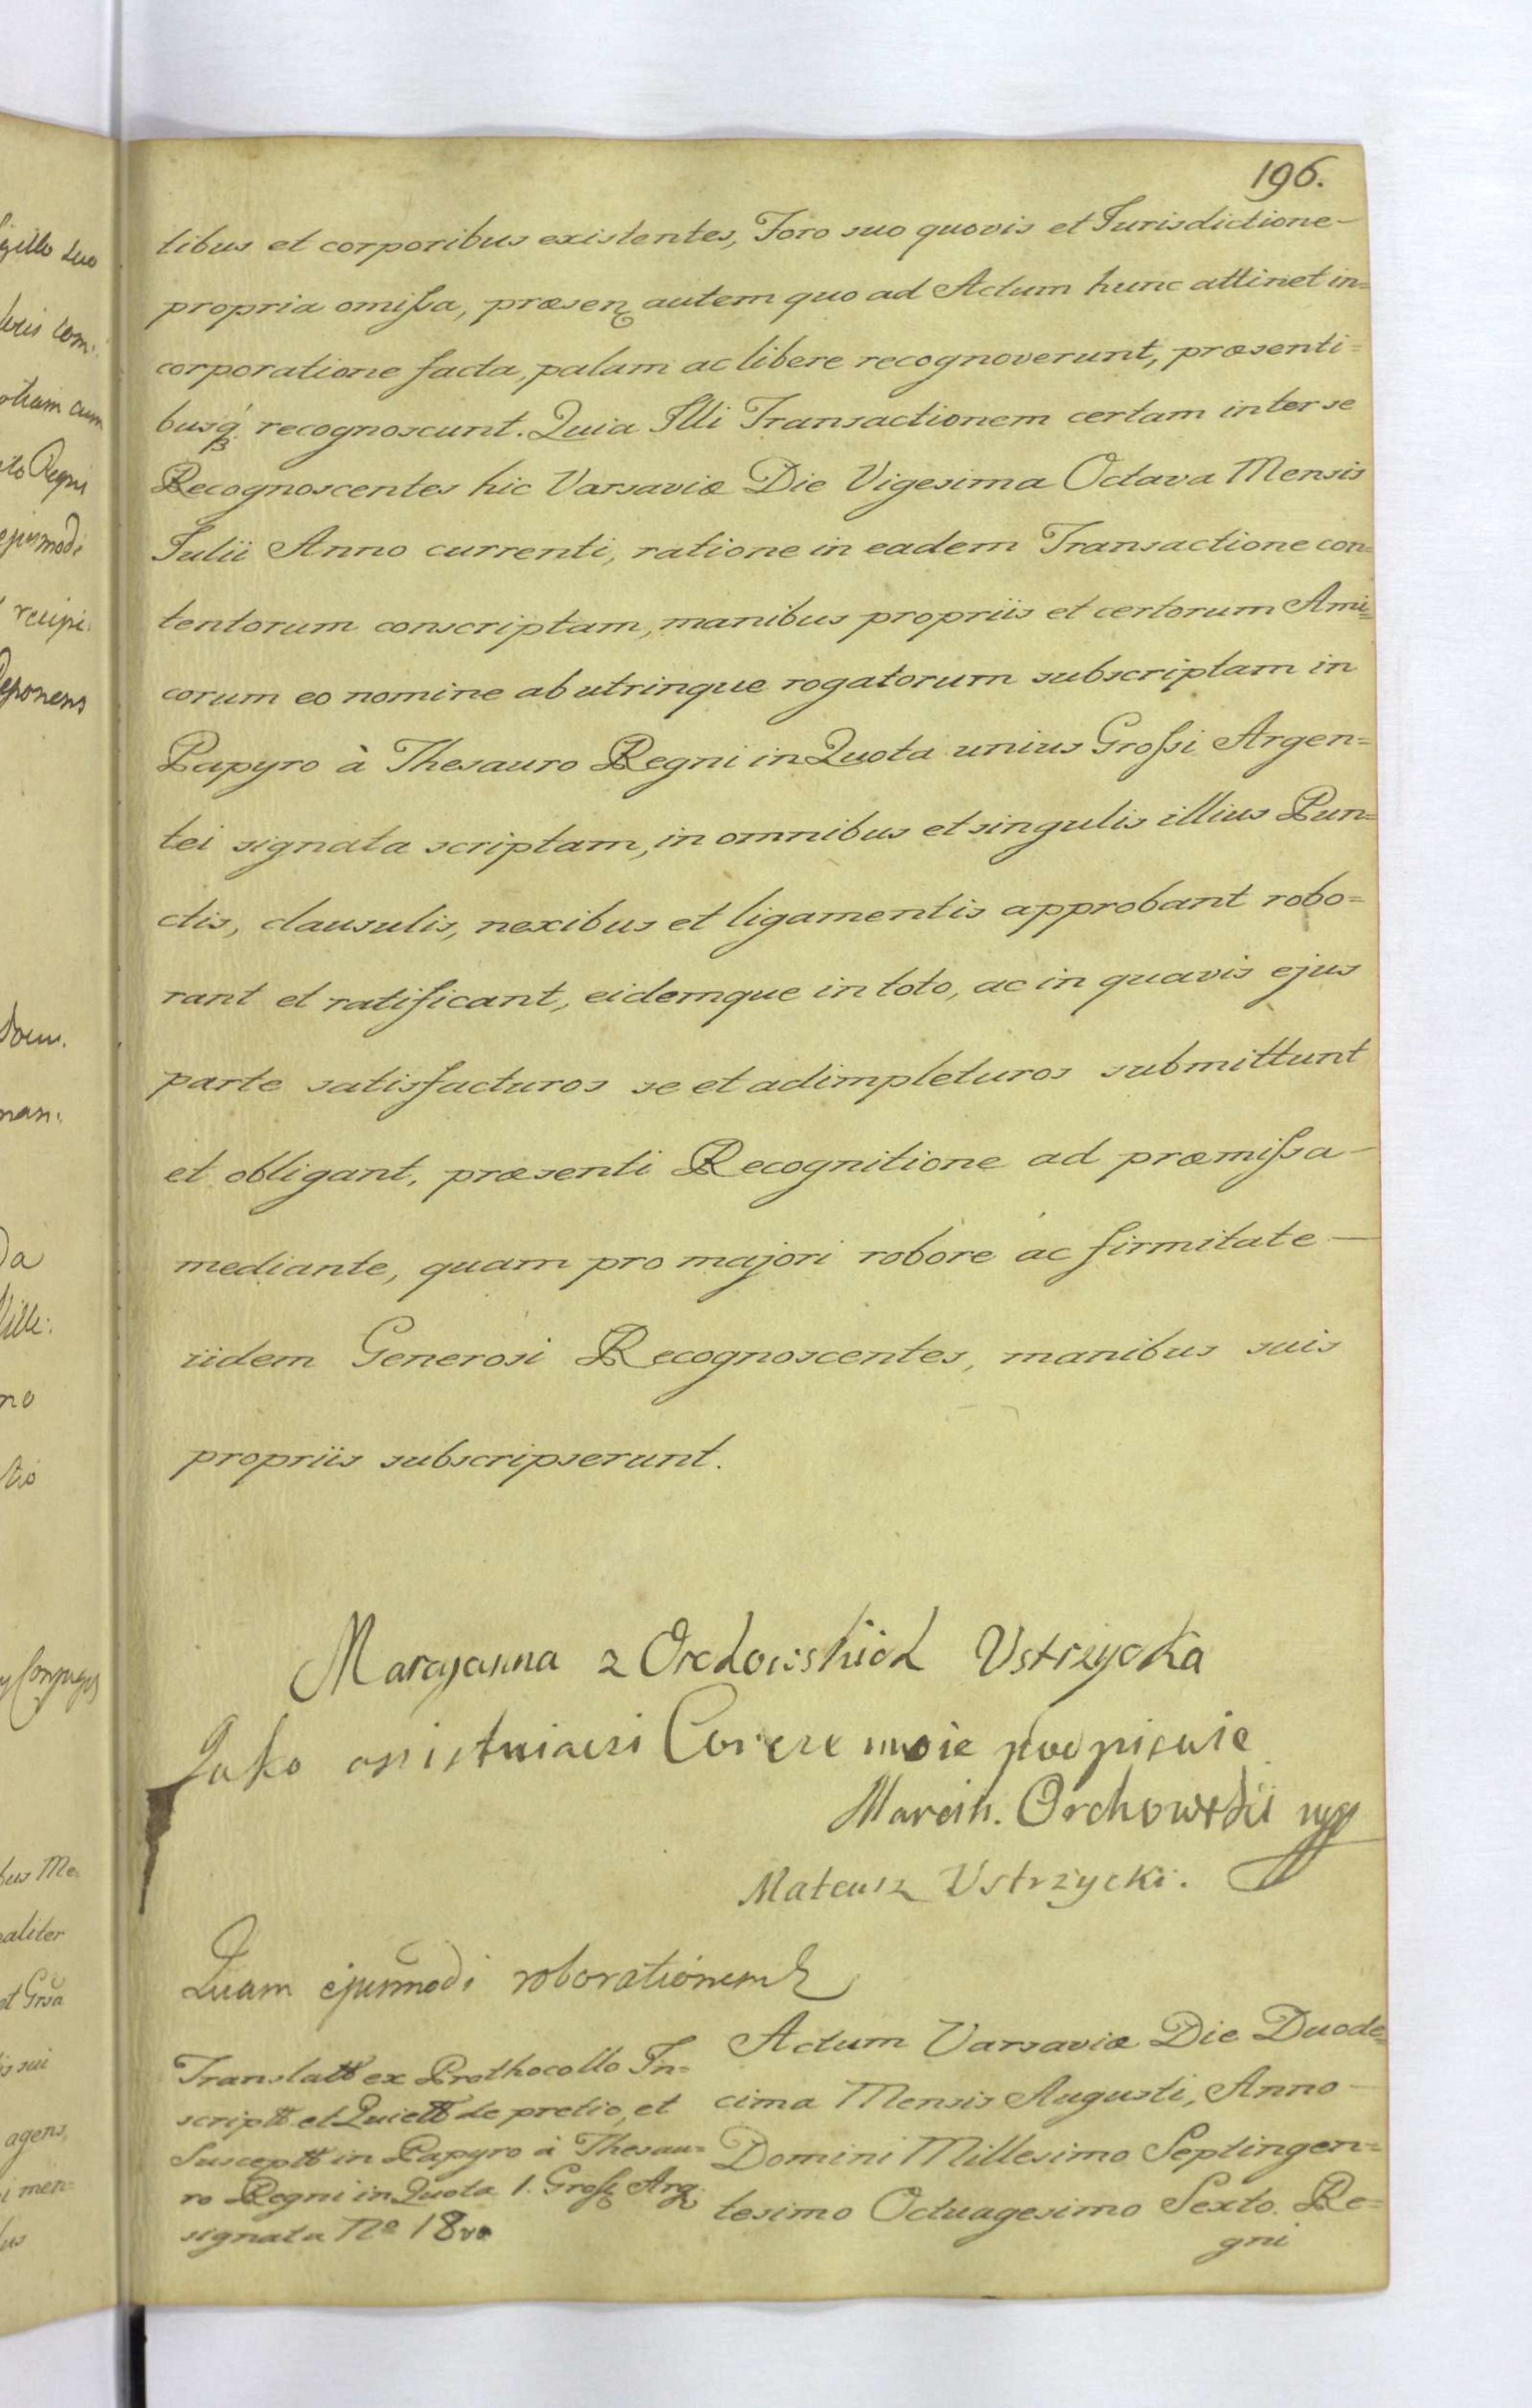 196.
libus et corporibus existentes, Foro suo quovis et Jurisdictione
propria omissa, præsen autem quo ad Actum hunc attinet in=
corporatione facta, palam ac libere recognoverunt, præsenti=
busq recognoscunt. Quia Illi Transactionem certam inter se
Recognoscentes hic Varsaviæ Die Vigesima Octava Mensis
Julii Anno currenti, ratione in eadem Transactione con=
tentorum conscriptam, manibus propriis et certorum Ami=
corum eo nomine ab utrinque rogatorum subscriptam in
Papyro à Thesauro Regni in Quota unius Grossi Argen=
tei signata scriptam, in omnibus et singulis illius Pun=
ctis, clausulis, nexibus et ligamentis approbant robo=
rant et ratificant, eidemque in toto, ac in quavis ejus
parte satisfacturos se et adimpleturos submittunt
et obligant, præsenti Recognitione ad præmissa
mediante, quam pro majori robore ac firmitate
iidem Generosi Recognoscentes, manibus suis
propriis subscripserunt.
Maryanna z Orchowskich Ustrzycka
Jako moie podpisuie
Marcin. Orchowskii mp
Mateusz Ustrzycki.
Quam ejusmodi roborationem
Translatt ex Prothocollo In=
scriptt et Quiett de pretio, et
Susceptt in Papyro à Thesau=
ro Regni in Quota 1. Gross Arg
signata No 18
Actum Varsaviæ Die Duode=
cima Mensis Augusti, Anno
Domini Millesimo Septingen=
tesimo Octuagesimo Sexto. Re=
gni